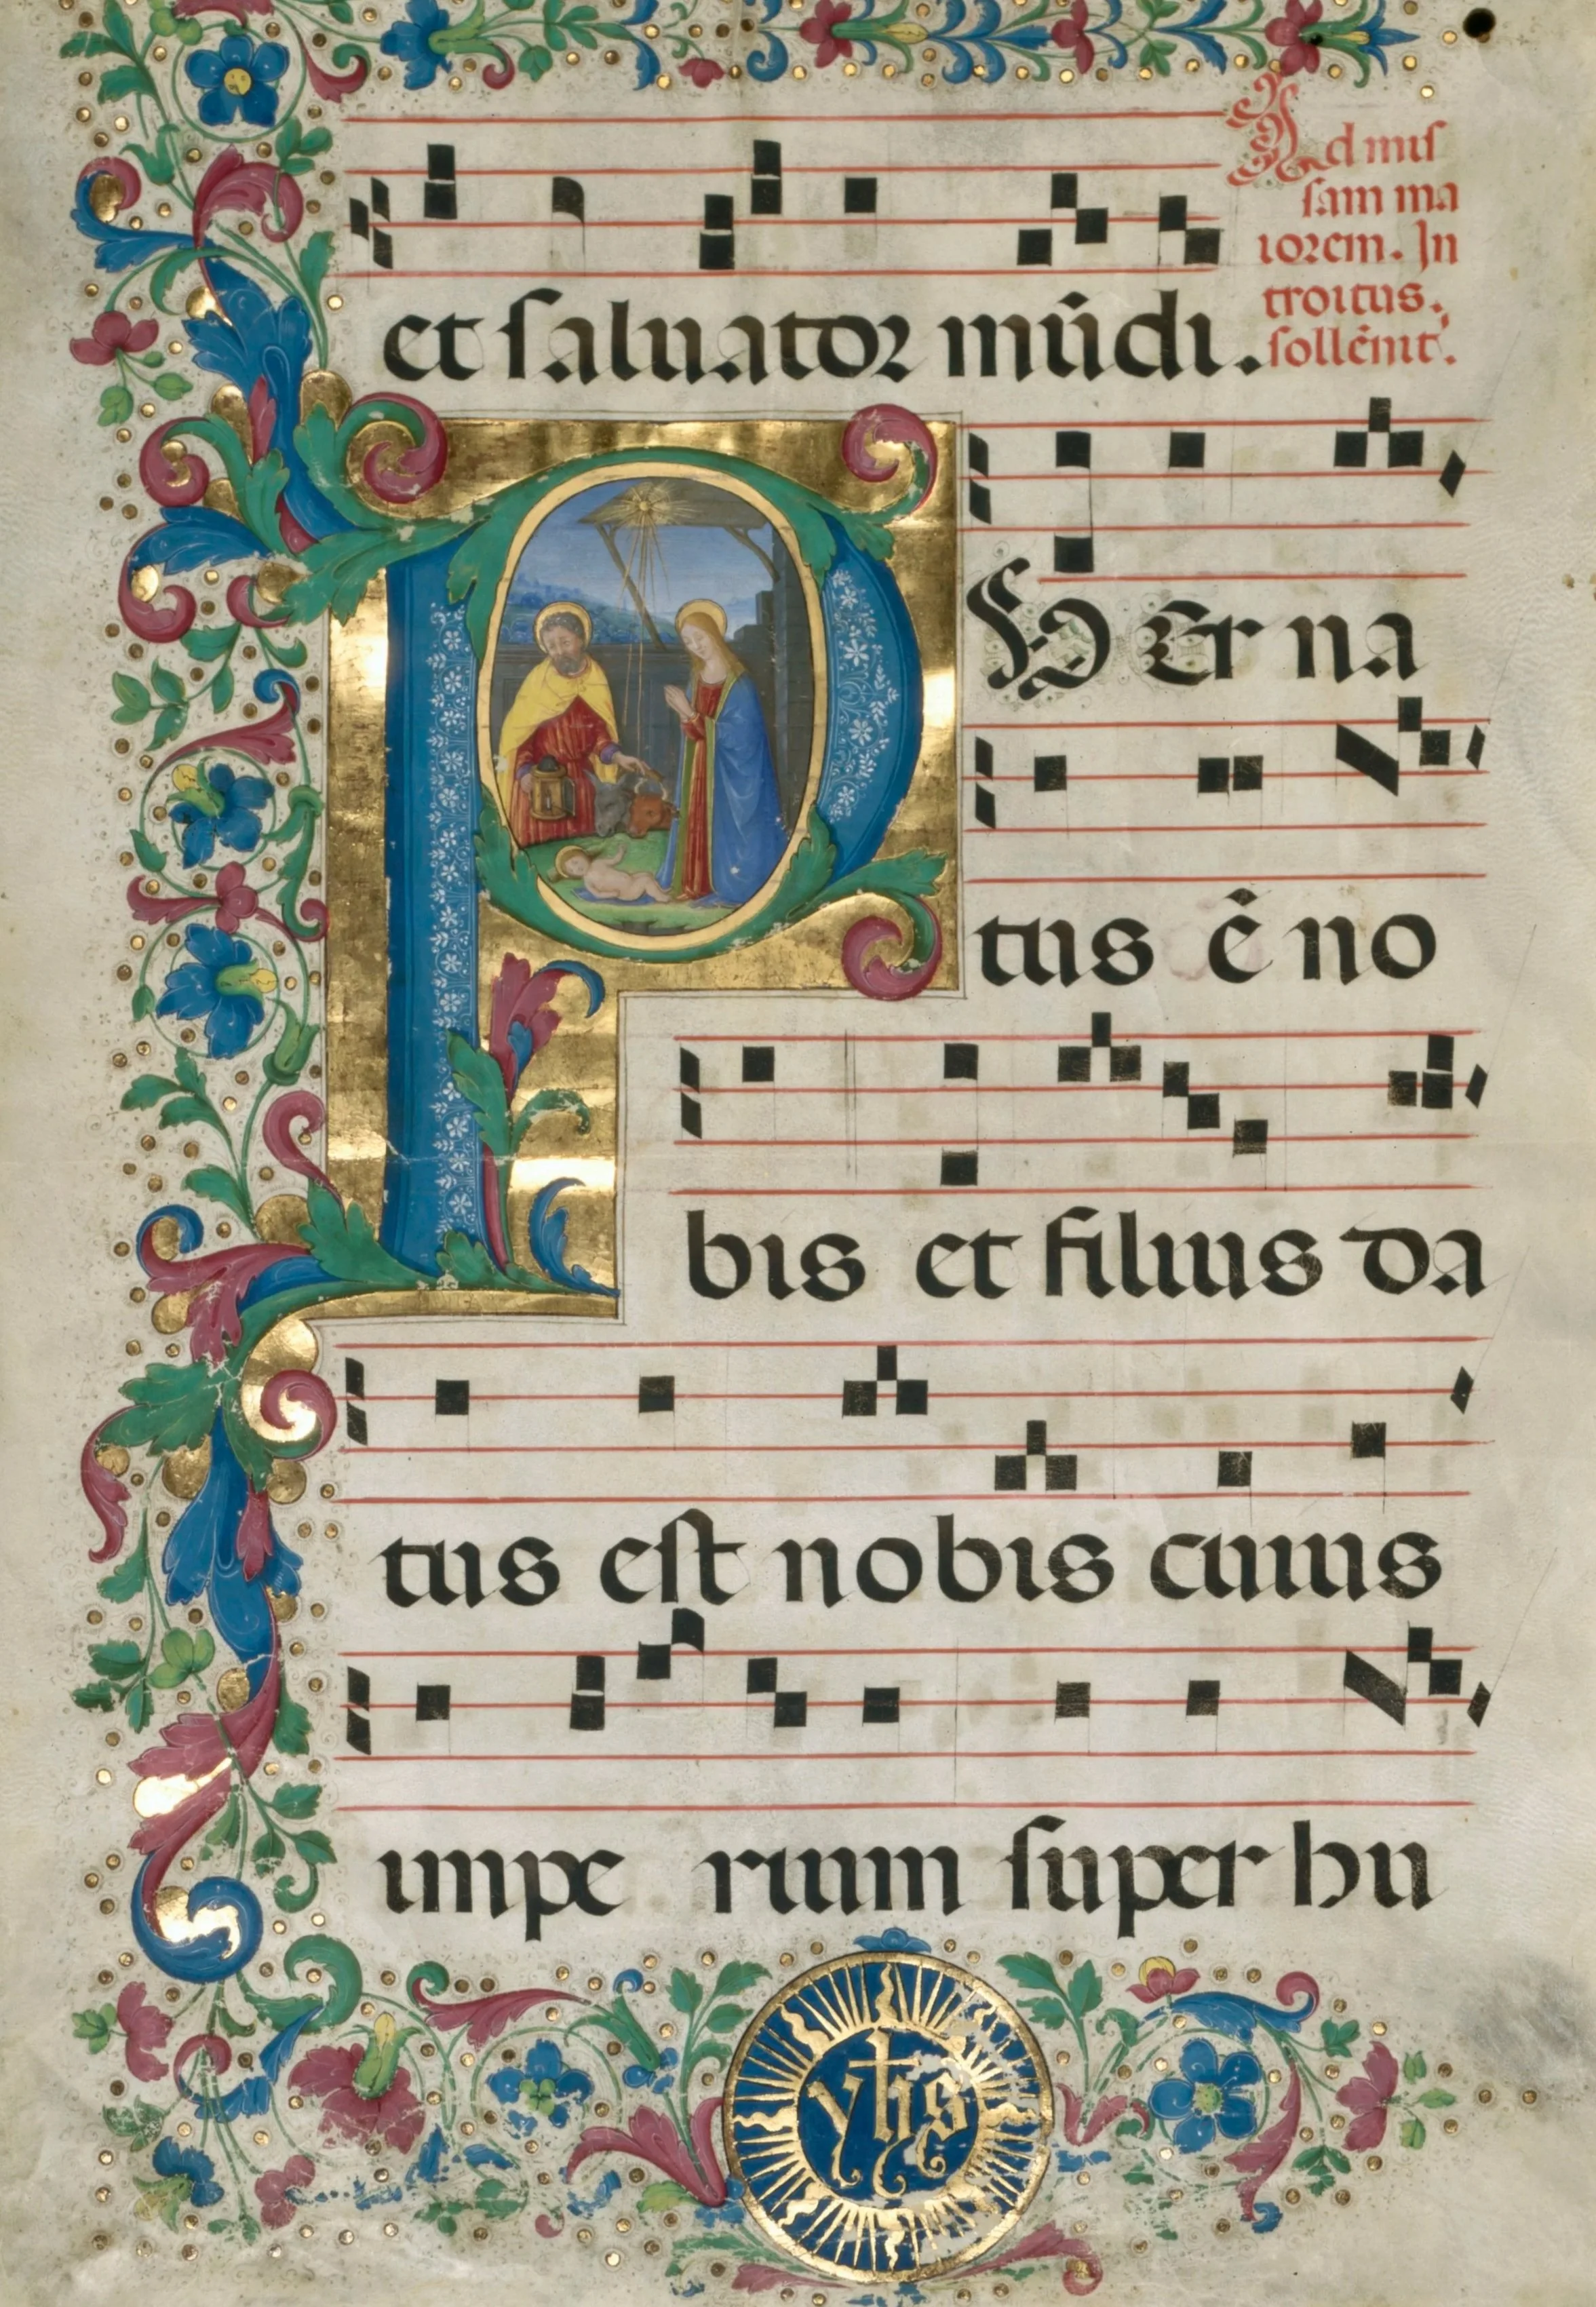 et saluator mũdi.
Ad mis
sam ma
iorem. In
troitus.
sollẽnit.
P Uer na
tus ẽ no
bis et filius da
tus est nobis cuius
impe rium super hu
yhs